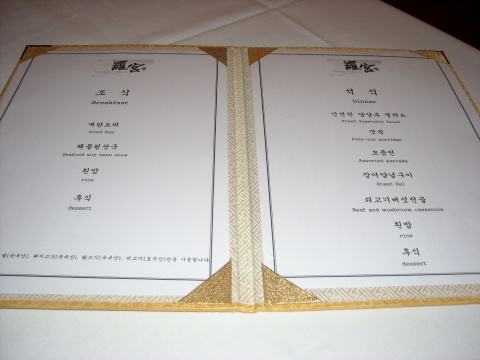 조 식
Breakfast
계란요리
Fried Egg
해물된장국
Seafood soy bean stew
흰밥
rice
후식
dessert
쌀(국내산), 돼지고기(국내산), 닭고기(국내산), 쇠고기(호주산)만을 사용합니다.
석 식
Dinner
신선한 양상추 샐러드
Fresh Vegetable Salad
잣죽
Pine-nut porridge
모듬전
Assorted pancake
장어양념구이
Roast Eel
쇠고기버섯전골
Beef and mushroom casserole
흰밥
rice
후식
dessert